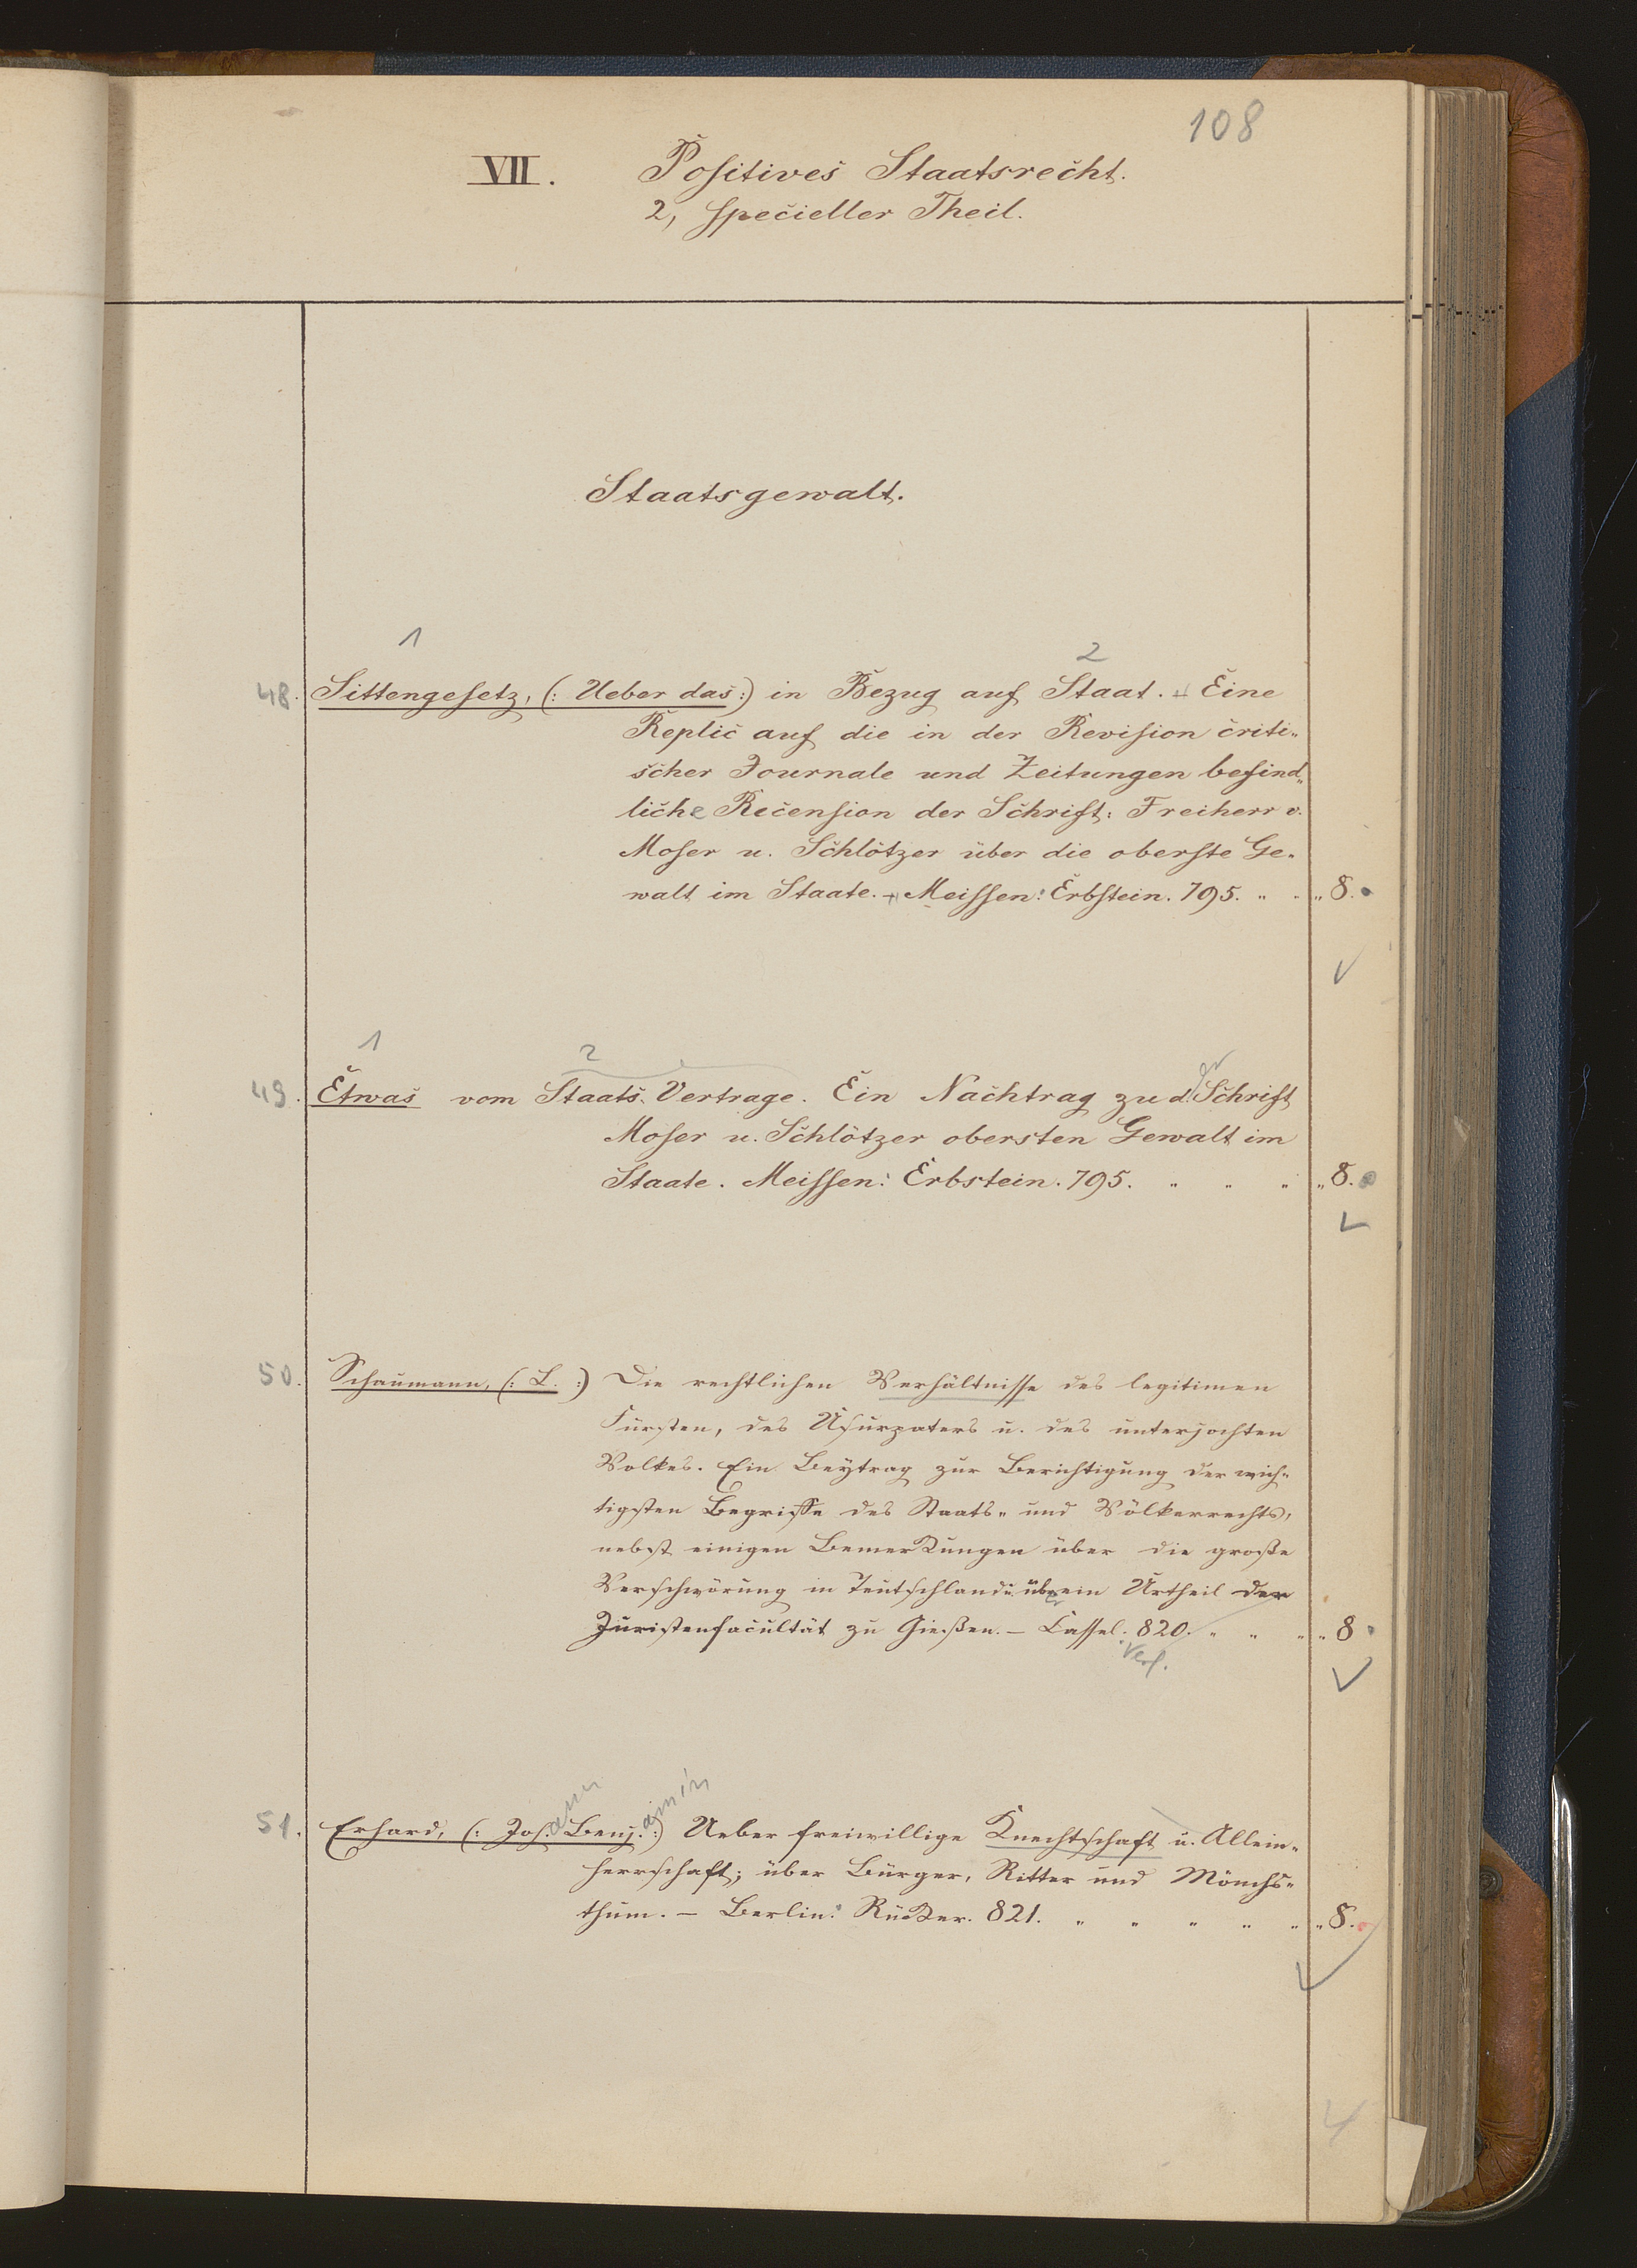 108
VII. Positives Staatsrecht.
2, specieller Theil.
Staatsgewalt.
1 2
48. Sittengesetz, (: Ueber das :) in Bezug auf Staat. – Eine
Replic auf die in der Revision criti-
scher Journale und Zeitungen befind-
liche Recension der Schrift: Freiherr v.
Moser u. Schlötzer über die oberste Ge-
walt im Staate. – Meissen: Erbstein. 795. " " " 8.
1 2
49. Etwas vom Staats-Vertrage. Ein Nachtrag zu d. Schrift
Moser u. Schlötzer obersten Gewalt im
Staate. Meissen: Erbstein. 795. " " " " 8.
50. Schaumann, (: L. :) Die rechtlichen Verhältnisse des legitimen
Fürsten, des Usurpators u. des unterjochten
Volkes. Ein Beytrag zur Berichtigung der wich-
tigsten Begriffe des Staats- und Völkerrechts,
nebst einigen Bemerkungen über die große
Verschwörung in Teutschland u. über ein Urtheil der
Juristenfacultät zu Gießen. – Cassel. 820. " " " " 8
Verf.
51. Erhard, (: Joh.ann Benj.amin :) Ueber freiwillige Knechtschaft u. Allein-
herrschaft; über Bürger, Ritter und Mönchs-
thum. – Berlin: Rücker. 821. " " " " " " 8.
4